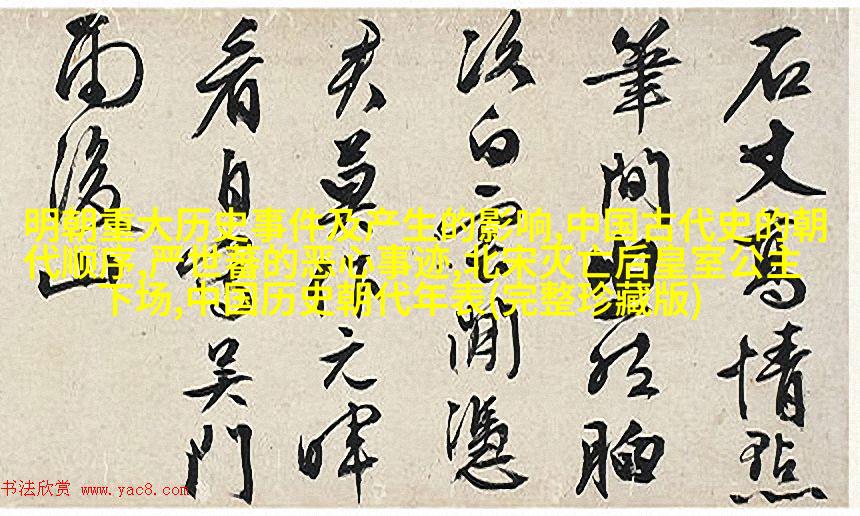 石丈高情點
筆間然胸
次白雲閒憑
君莫元暉
看自是吳門
雨後山
明朝重大历史事件及产生的影响,中国古代史的朝
代顺序,严世蕃的恶心事迹,北宋灭亡后皇室公主
下场,中国历史朝代年表(完整珍藏版)
书法欣赏 www.yac8.com